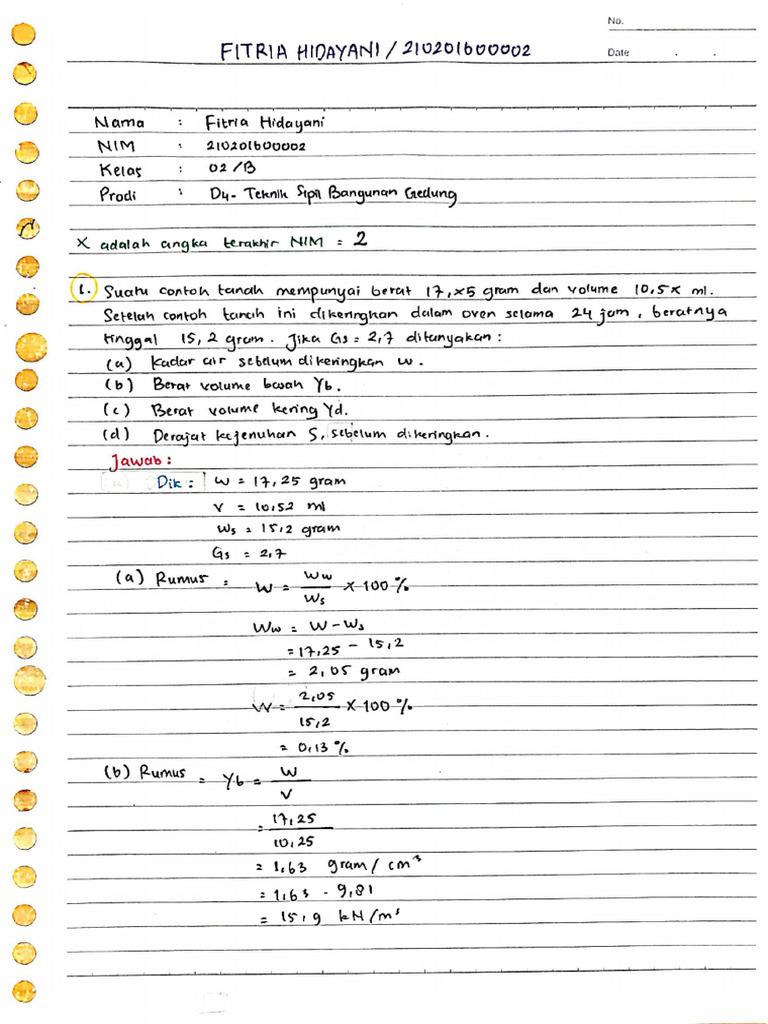 No.
FITRIA HIDAYANI / 210201600002
Date . .
Nama : Fitria Hidayani
NIM : 210201600002
Kelas : 02 /B
Prodi : D4- Teknik Sipil Bangunan Gedung
X adalah angka terakhir NIM = 2
1. Suatu contoh tanah mempunyai berat 17,x5 gram dan volume 10,5x ml.
Setelah contoh tanah ini dikeringkan dalam oven selama 24 jam, beratnya
tinggal 15,2 gram. Jika Gs = 2,7 ditanyakan :
(a) Kadar air sebelum dikeringkan w.
(b) Berat volume basah γb.
(c) Berat volume kering γd.
(d) Derajat kejenuhan S, sebelum dikeringkan.
Jawab :
Dik : W = 17,25 gram
V = 10,52 ml
Ws = 15,2 gram
Gs = 2,7
(a) Rumus = W = Ww / Ws × 100 %
Ww = W - Ws
= 17,25 - 15,2
= 2,05 gram
W = 2,05 / 15,2 × 100 %
= 0,13 %
(b) Rumus = γb = W / V
= 17,25 / 10,25
= 1,63 gram / cm³
= 1,63 - 9,81
= 15,9 kN/m³